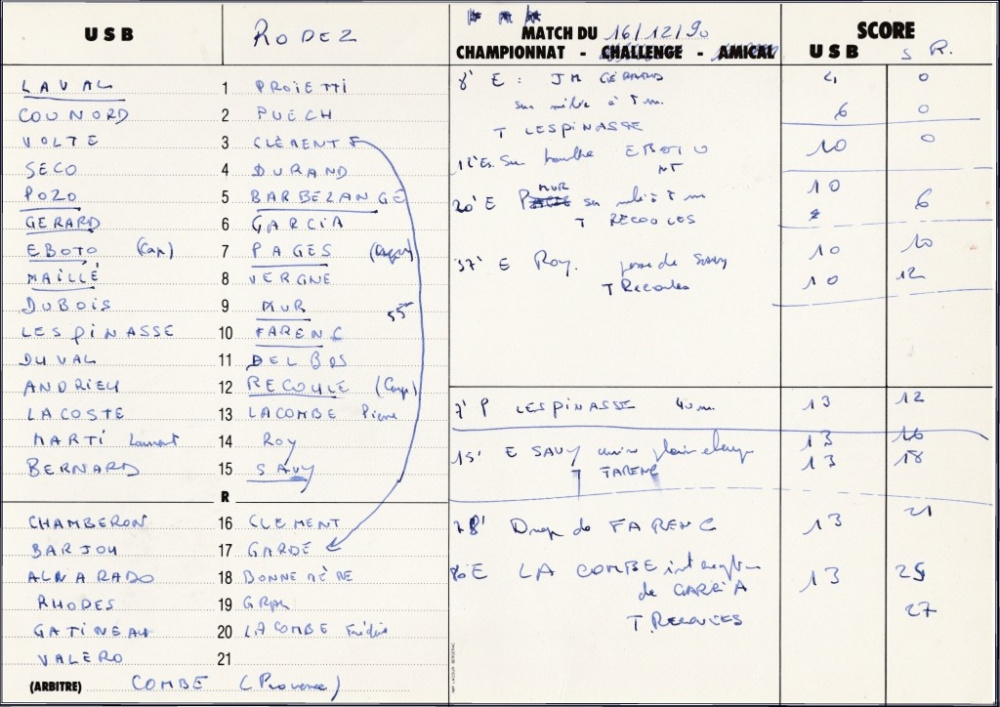 USB RODEZ
LAVAL 1 PROIETTI
COUNORD 2 PUECH
VOLTE 3 CLÉMENT F
SECO 4 DURAND
POZO 5 BARBEZANGE
GERARD 6 GARCIA
EBOTO (Cap) 7 PAGÈS
MAILLÉ 8 VERGNE
DUBOIS 9 MUR 55
LESPINASSE 10 FARENC
DUVAL 11 DELBOS
ANDRIEU 12 RECOULE (Cap)
LACOSTE 13 LACOMBE Pierre
MARTI Laurent 14 ROY
BERNARD 15 SAVY
R
CHAMBERON 16 CLEMENT
BARJOU 17 GARDE
ALNARADO 18 BONNEMÈRE
RHODES 19 GRAL
GATINEAU 20 LACOMBE Frédéric
VALERO 21
(ARBITRE) COMBE (Provence)
MATCH DU 16/12/90
CHAMPIONNAT - CHALLENGE - AMICAL
SCORE
USB S.R.
8' E : JM GÉRARD 4 0
sur mêlée à 5 m.
6 0
T LESPINASSE
12' Es. sur touche EBOTO 10 0
NT
20' E MUR sur mêlée à 5 m 10
T RECOULES 6
37' E Roy. passe de Savy 10 10
T Recoules 10 12
7' P LESPINASSE 40 m. 13 12
15' E SAVY 13 16
T FARENC 13 18
78' Drop de FARENC 13 21
80 E LACOMBE interception 13 25
de GARCIA
T. RECOULES 27